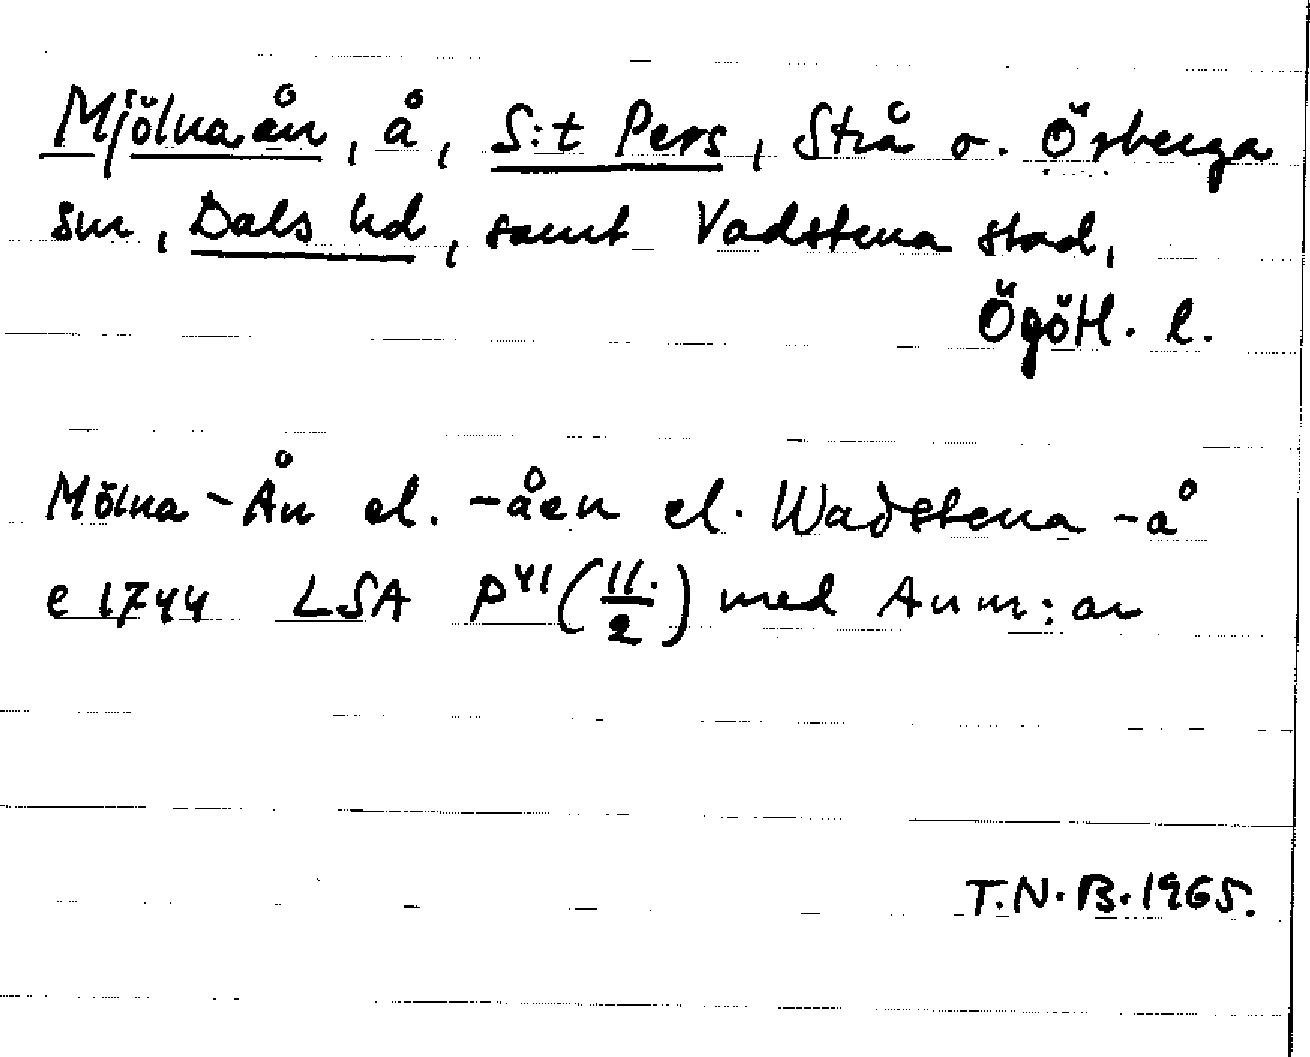 Mjölnaån, å, S:t Pers, Strå o. Örberga
snr, Dals hd, samt Vadstena stad,
Ögötl. l.
Mölna-Ån el. -åen el. Wadstena-å
e 1744 LSA P41(11./2) med Anm:ar
T.N.B. 1965.